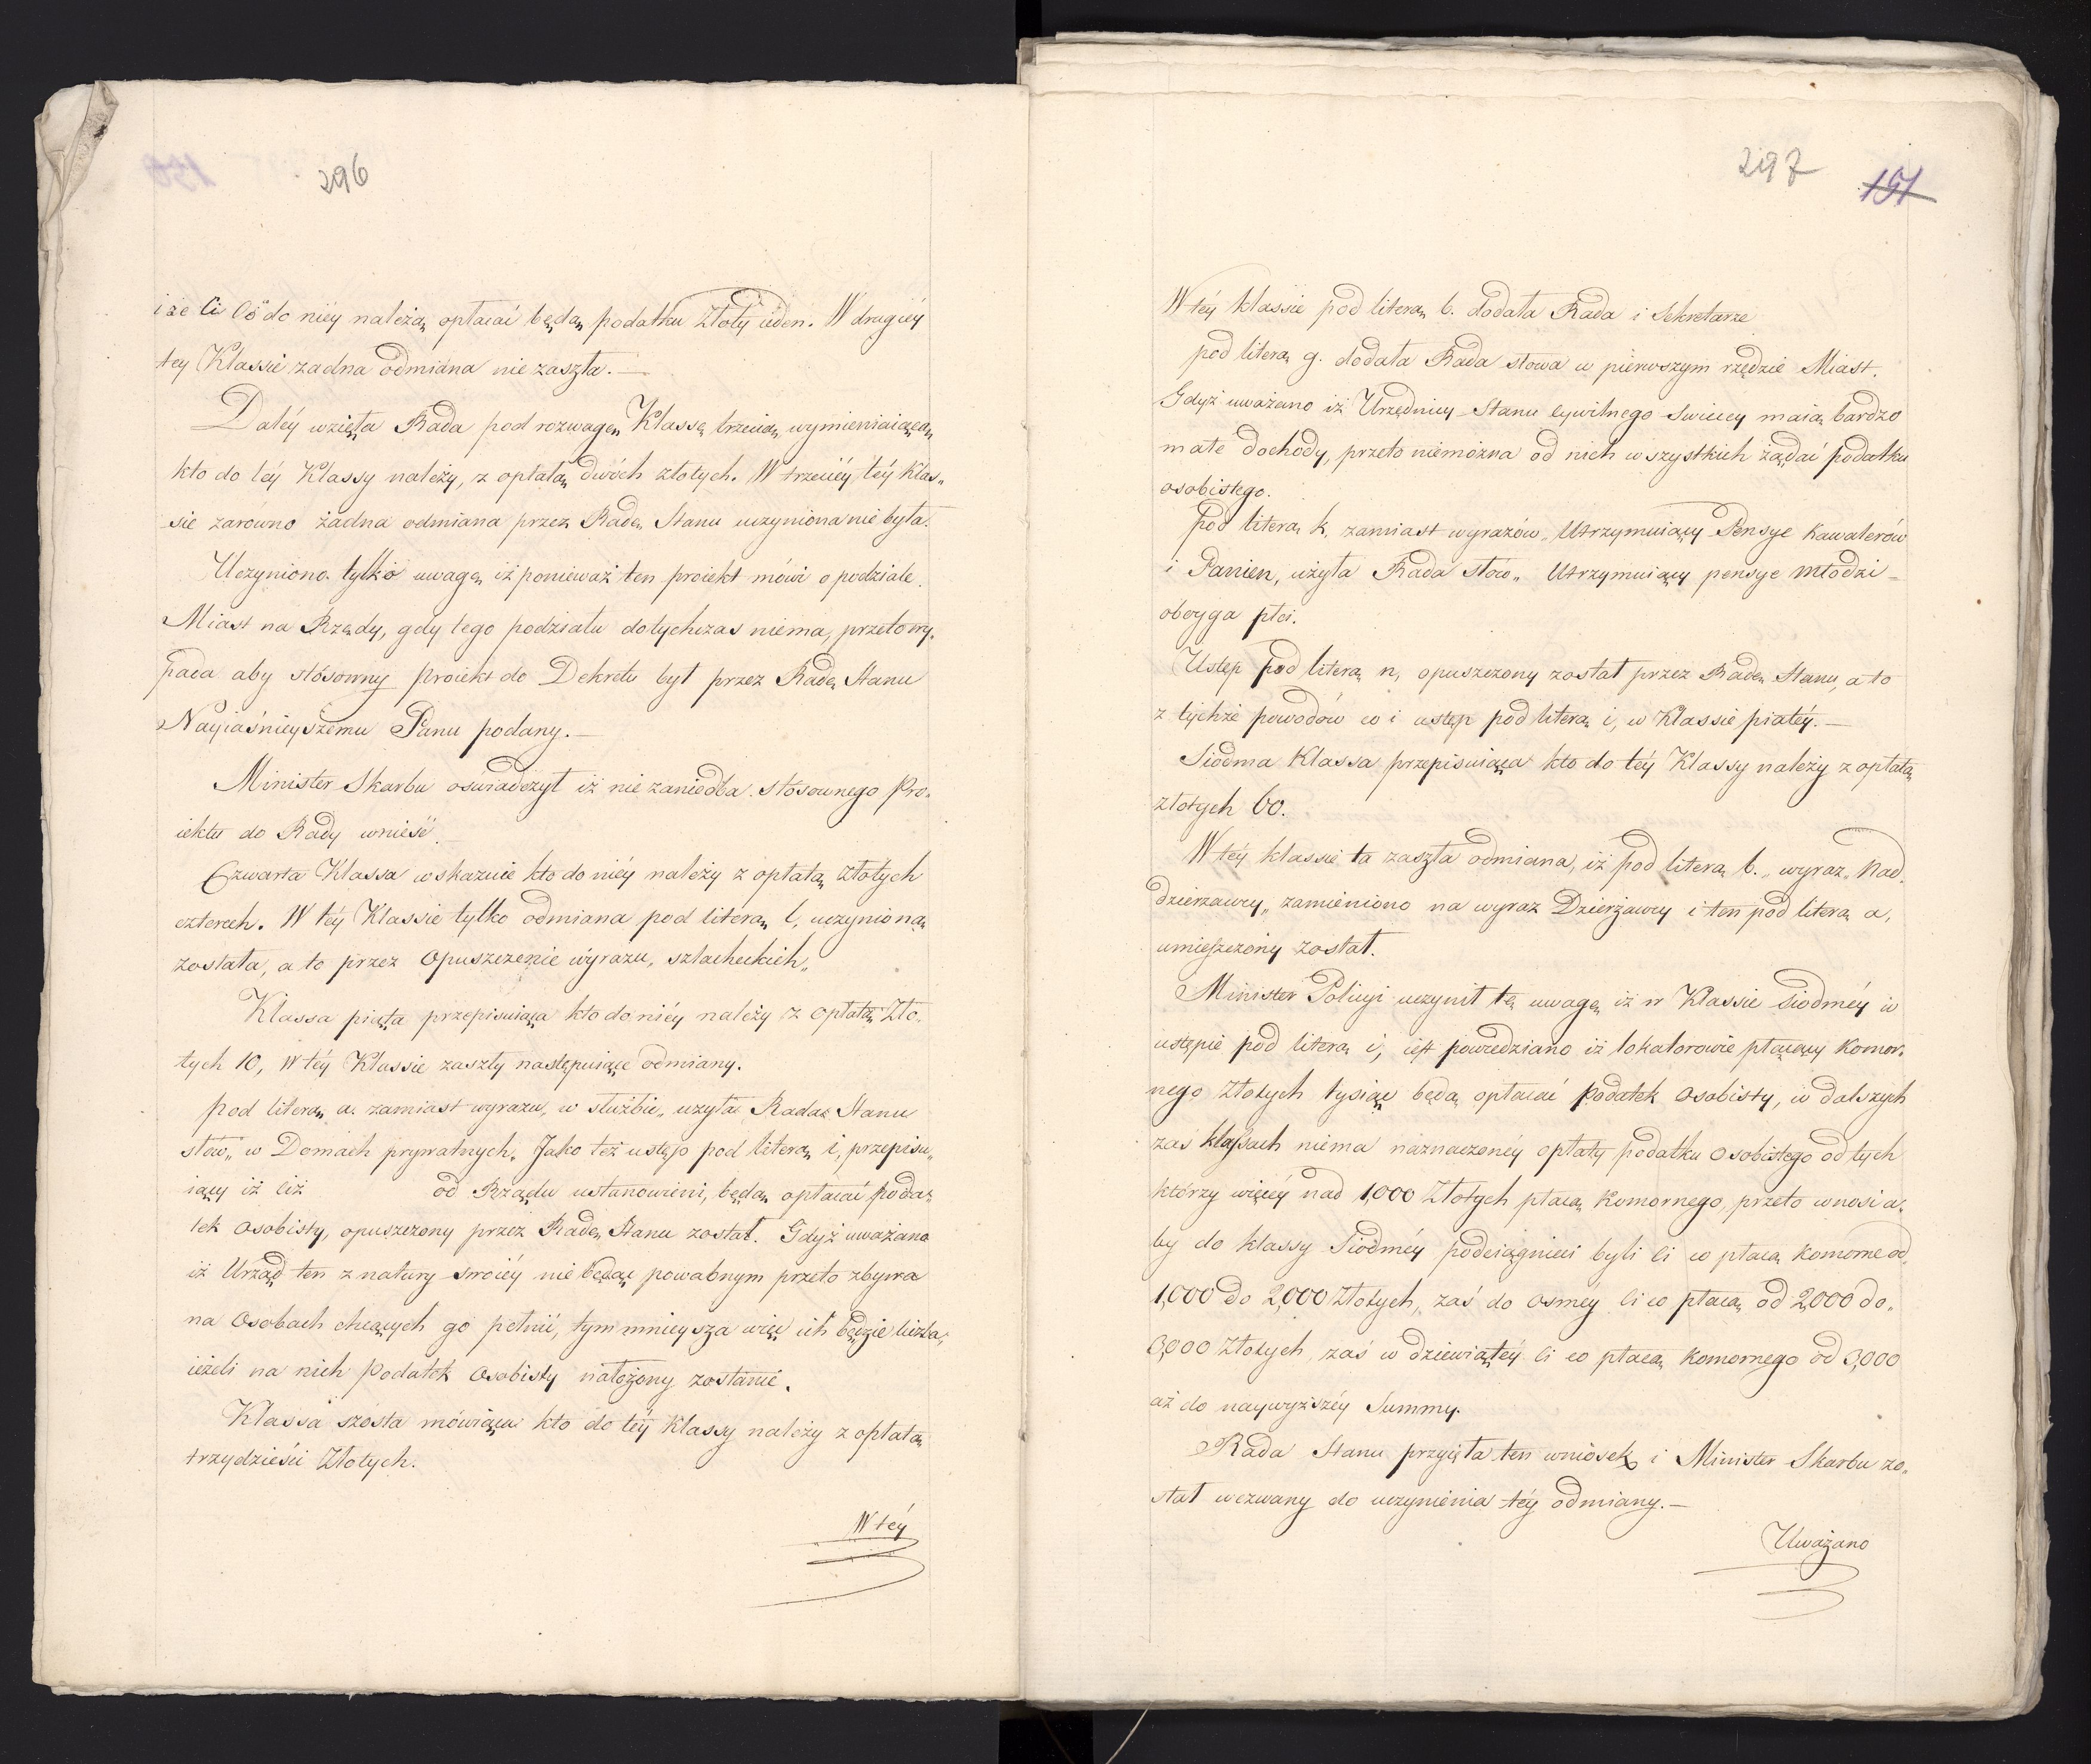 296
iże Ci co do niéy należą, opłacać będą podatku złoty ieden. W drugiéy
tey Klassie żadna odmiana nie zaszła.—
Daléy wzięła Rada pod rozwagę Klassę trzecią, wymieniaiącą,
kto do téy Klassy należy, z opłatą dwóch złotych. W trzeciéy téy Klas„
sie zarówno żadna odmiana przez Radę Stanu uczyniona nie była.
Uczyniono tylko uwagę, iż ponieważ ten proiekt mówi o podziale
Miast na Rzędy, gdy tego podziału dotychczas niema, przeto wy„
pada aby stósowny proiekt do Dekretu był przez Radę Stanu
Nayiaśnieyszemu Panu podany.—
Minister Skarbu oświadczył iż nie zaniedba stósownego Pro„
iektu do Rady wnieść.
Czwarta Klassa wskazuie kto do niéy należy z opłatą złotych
czterech. W téy Klassie tylko odmiana pod literą l, uczynioną
została, a to przez opuszczenie wyrazu, szlacheckich„
Klassa piąta przepisuiąca kto do niéy należy z opłatą Zło„
tych 10, W téy Klassie zaszły następuiące odmiany.
pod literą a. zamiast wyrazu, w służbie„ użyła Rada Stanu
słów„ w Domach prywatnych. Jako też ustęp pod literą i, przepisu„
iący iż ciż od Rządu ustanowieni, będą opłacać poda„
tek osobisty, opuszczony przez Radę Stanu został. Gdyż uważano
iż Urząd ten z natury swoiéy nie będąc powabnym przeto zbywa
na osobach chcących go pełnić, tym mnieysza więc ich będzie liczba,
ieżeli na nich Podatek osobisty nałożony zostanie.
Klassa szósta mówiąca kto do téy Klassy należy z opłatą
trzydzieści Złotych.
W téy
297
151
W téy klassie pod literą b. dodała Rada i Sekretarze
pod literą g. dodała Rada słowa w pierwszym rzędzie Miast.
Gdyż uważano iż Urzędnicy Stanu cywilnego Swieccy maią bardzo
małe dochody, przeto niemożna od nich wszystkich żądać podatku
osobistego.
Pod literą k, zamiast wyrazów„ Utrzymuiący Pensye Kawalerów
i Panien, użyła Rada słów„ Utrzymuiący pensye młodzi
oboyga płci.
Ustęp pod literą n, opuszczony został przez Radę Stanu, a to
z tychże powodów co i ustęp pod literą i, w Klassie piątéy.—
Siódma Klassa przepisuiąca kto do téy Klassy należy z opłatą
złotych 60.
W téy klassie ta zaszła odmiana, iż pod literą b. „wyraz„ Nad„
dzierzawcy„ zamieniono na wyraz Dzierżawcy i ten pod literą a,
umieszczony został.
Minister Policyi uczynił tę uwagę, iż w Klassie siódméy w
ustępie pod literą i, iest powiedziano iż lokatorowie płacący Komor„
nego Złotych tysiąc będą opłacać podatek osobisty, w dalszych
zaś klassach niema naznaczonéy opłaty podatku osobistego od tych
którzy więcéy nad 1,000 Złotych płacą Komornego, przeto wnosi a„
by do klassy Siódméy podciągnieci byli ci co płacą komorne od
1,000 do 2,000 Złotych„ zaś do ósméy ci co płacą od 2,000 do„
3,000 Złotych, zaś w dziewiątéy ci co płacą Komornego od 3,000
aż do naywyższéy Summy.
Rada Stanu przyięła ten wniosek, i Minister Skarbu zo„
stał wezwany do uczynienia téy odmiany.—
Uważano